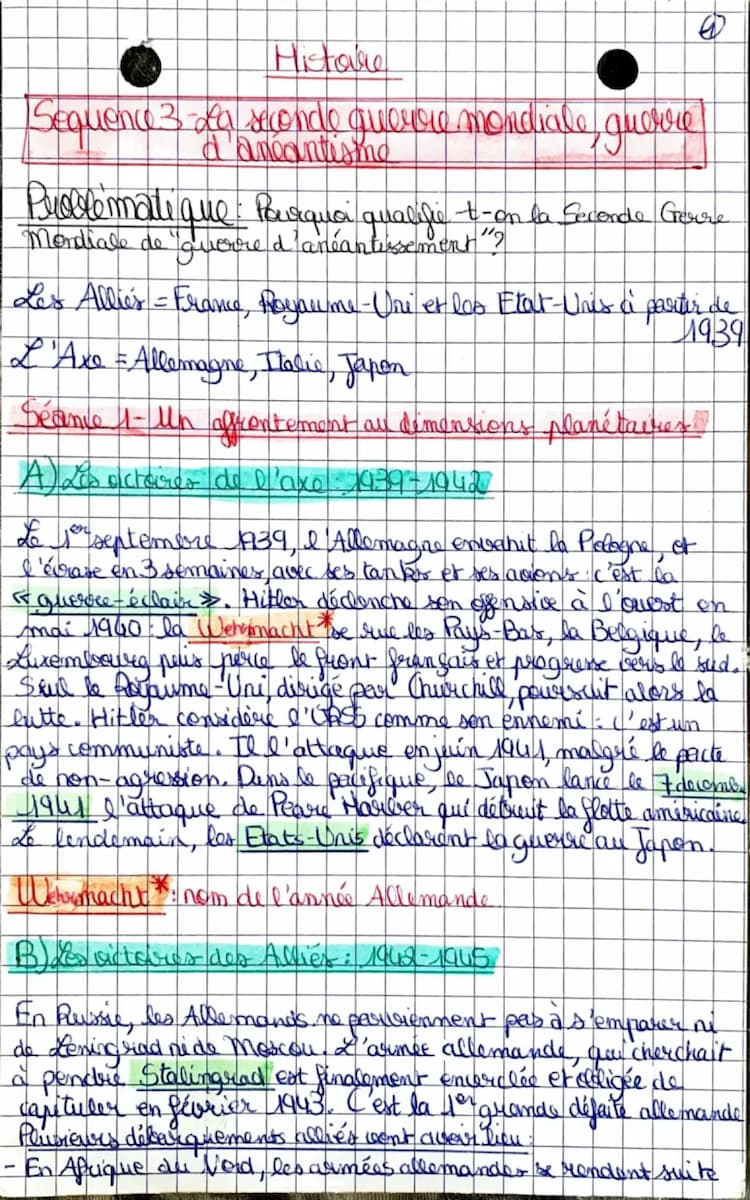 1
Histoire
Sequence 3 - La seconde guerre mondiale, guerre
d'anéantisme
Problématique : Pourquoi qualifie-t-on la Seconde Gerre
Mondiale de "guerre d'anéantissement"?
Les Alliés = France, Royaume-Uni et les Etat-Unis à partir de
1939
L'Axe = Allemagne, Italie, Japon
Séance 1 - Un affrontement au dimensions planétaires
A) Les victoires de l'axe : 1939-1942
Le 1er septembre 1939, l'Allemagne envahit la Pologne, et
l'écrase en 3 semaines, avec ses tanks et ses avions : c'est la
« guerre-éclair ». Hitler déclenche son offensive à l'ouest en
mai 1940 : la Wehrmacht* se rue les Pays-Bas, la Belgique, le
Luxembourg puis perce le front français et progresse vers le sud.
Seul le Royaume-Uni, dirigé par Churchill, poursuit alors la
lutte. Hitler considère l'URSS comme son ennemi : c'est un
pays communiste. Il l'attaque en juin 1941, malgré le pacte
de non-agression. Dans le pacifique, le Japon lance le 7 décembre
1941 l'attaque de Pearl Harbor qui détruit la flotte américaine.
Le lendemain, les Etats-Unis déclarent la guerre au Japon.
Wehrmacht* : nom de l'année Allemande
B) Les victoires des Alliés : 1942-1945
En Russie, les Allemands ne parviennent pas à s'emparer ni
de Leningrad ni de Moscou. L'armée allemande, qui cherchait
à prendre Stalingrad est finalement encerclée et obligée de
capituler en février 1943. C'est la 1er grande défaite allemande
Plusieurs débarquements alliés vont avoir lieu :
- En Afrique du Nord, les armées allemandes se rendent suite